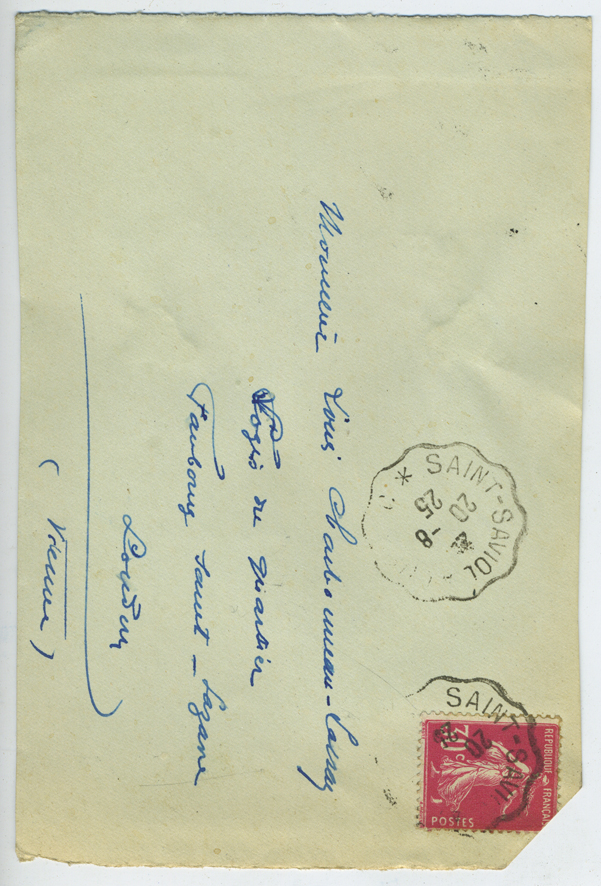 Monsieur Louis Charbonneau-Lassay
Logis du Quartier
Faubourg Saint-Lazare
Loudun
(Vienne)
* SAINT-SAVIOL
20
25
8
SAINT-SAVI
20
REPUBLIQUE FRANÇAI
20c
POSTES